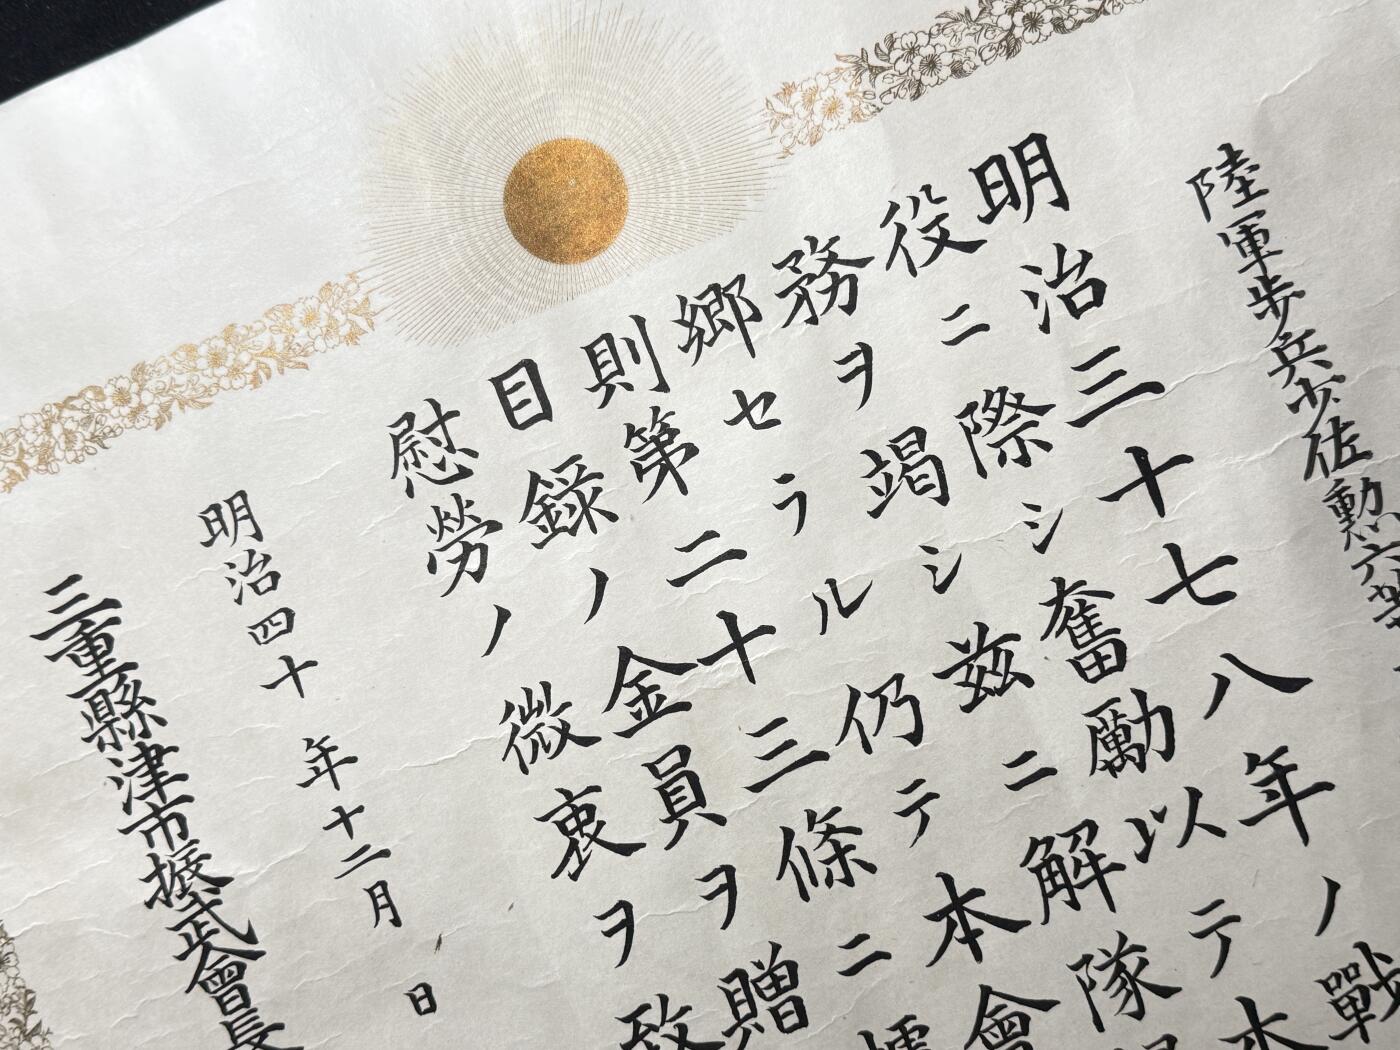 陸軍歩兵少佐勲六等
明治三十七八年ノ戰
役ニ際シ奮勵以テ本
務ヲ竭シ茲ニ解隊
郷セラルル仍テ本會
則第二十三條ニ
目録ノ金員ヲ贈
慰勞ノ微衷ヲ致
明治四十年十二月日
三重縣津市振武會長